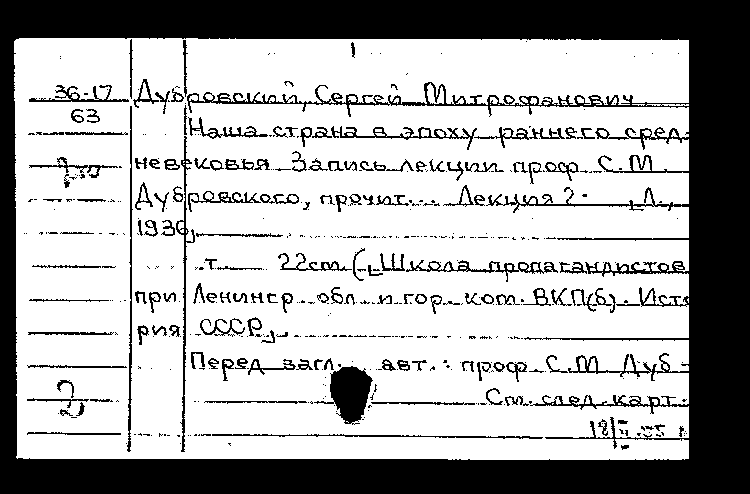 36-17
63
Дубровский, Сергей Митрофанович
Наша страна в эпоху раннего сред-
невековья Запись лекции проф С.М.
Дубровского, прочит... Лекция 2. [Л.,
1936]
т. 22 ст. ([Школа пропагандистов
при Ленингр. обл. и гор. ком. ВКП(б). Исто
рия СССР]).
Перед загл. авт.: проф С.М Дуб-
2
См. след. карт.